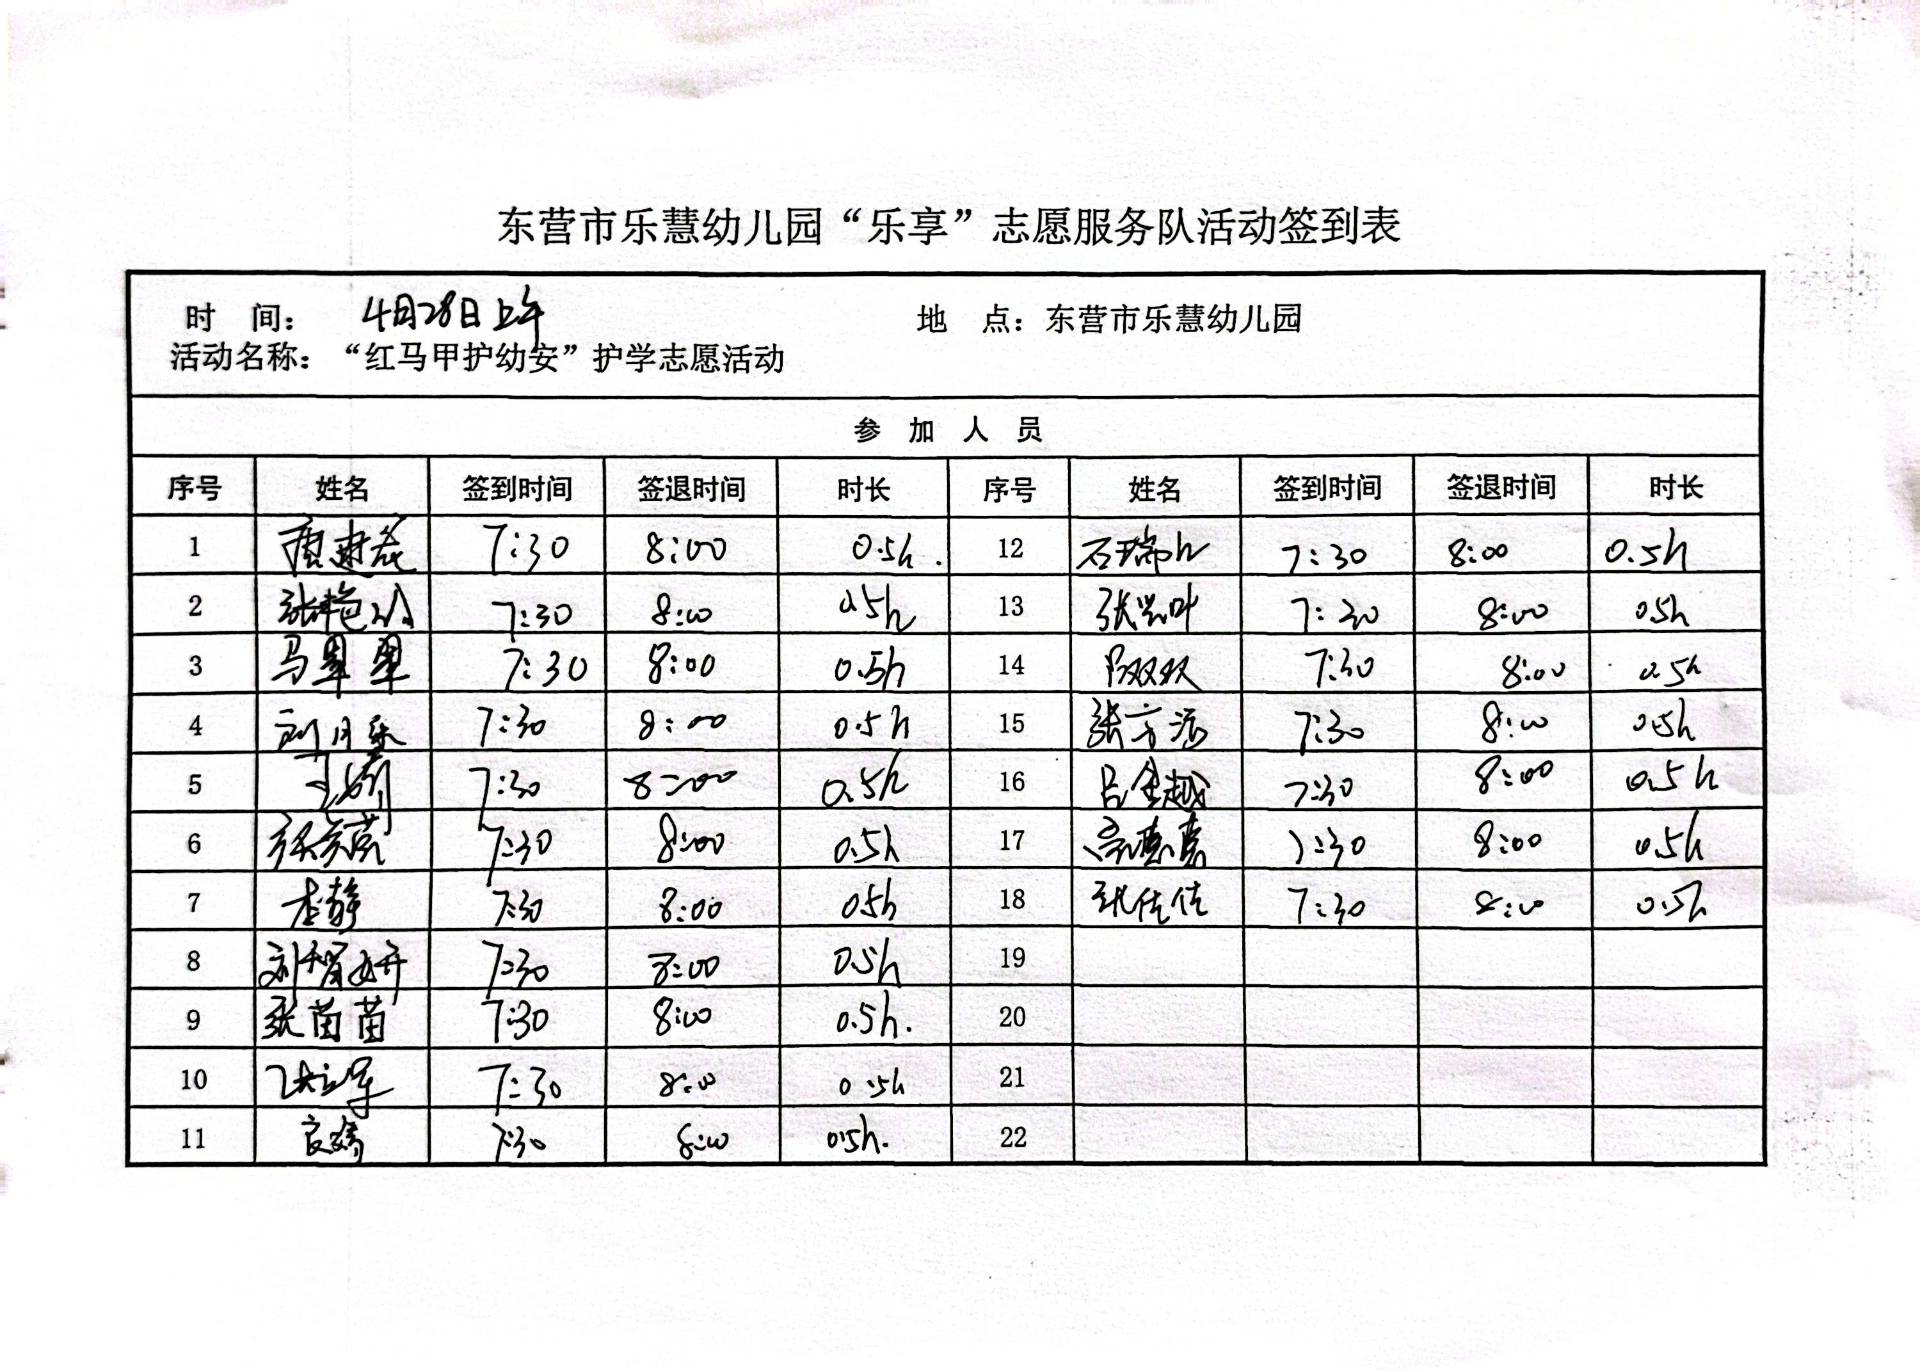 东营市乐慧幼儿园“乐享”志愿服务队活动签到表
时 间： 4月28日上午 地 点：东营市乐慧幼儿园
活动名称：“红马甲护幼安”护学志愿活动
参 加 人 员
序号 姓名 签到时间 签退时间 时长 序号 姓名 签到时间 签退时间 时长
1 7:30 8:00 0.5h. 12 石瑞 7:30 8:00 0.5h
2 张艳 7:30 8:00 0.5h 13 张 叶 7:30 8:00 0.5h
3 马翠翠 7:30 8:00 0.5h 14 双双 7:30 8:00 0.5h
4 刘月乐 7:30 8:00 0.5h 15 张方洁 7:30 8:00 0.5h
5 王 7:30 8:00 0.5h 16 吕金越 7:30 8:00 0.5h
6 张 英 7:30 8:00 0.5h 17 7:30 8:00 0.5h
7 李静 7:30 8:00 0.5h 18 张佳佳 7:30 8:00 0.5h
8 刘 妍 7:30 8:00 0.5h 19
9 张苗苗 7:30 8:00 0.5h. 20
10 张立军 7:30 8:00 0.5h 21
11 7:30 8:00 0.5h. 22